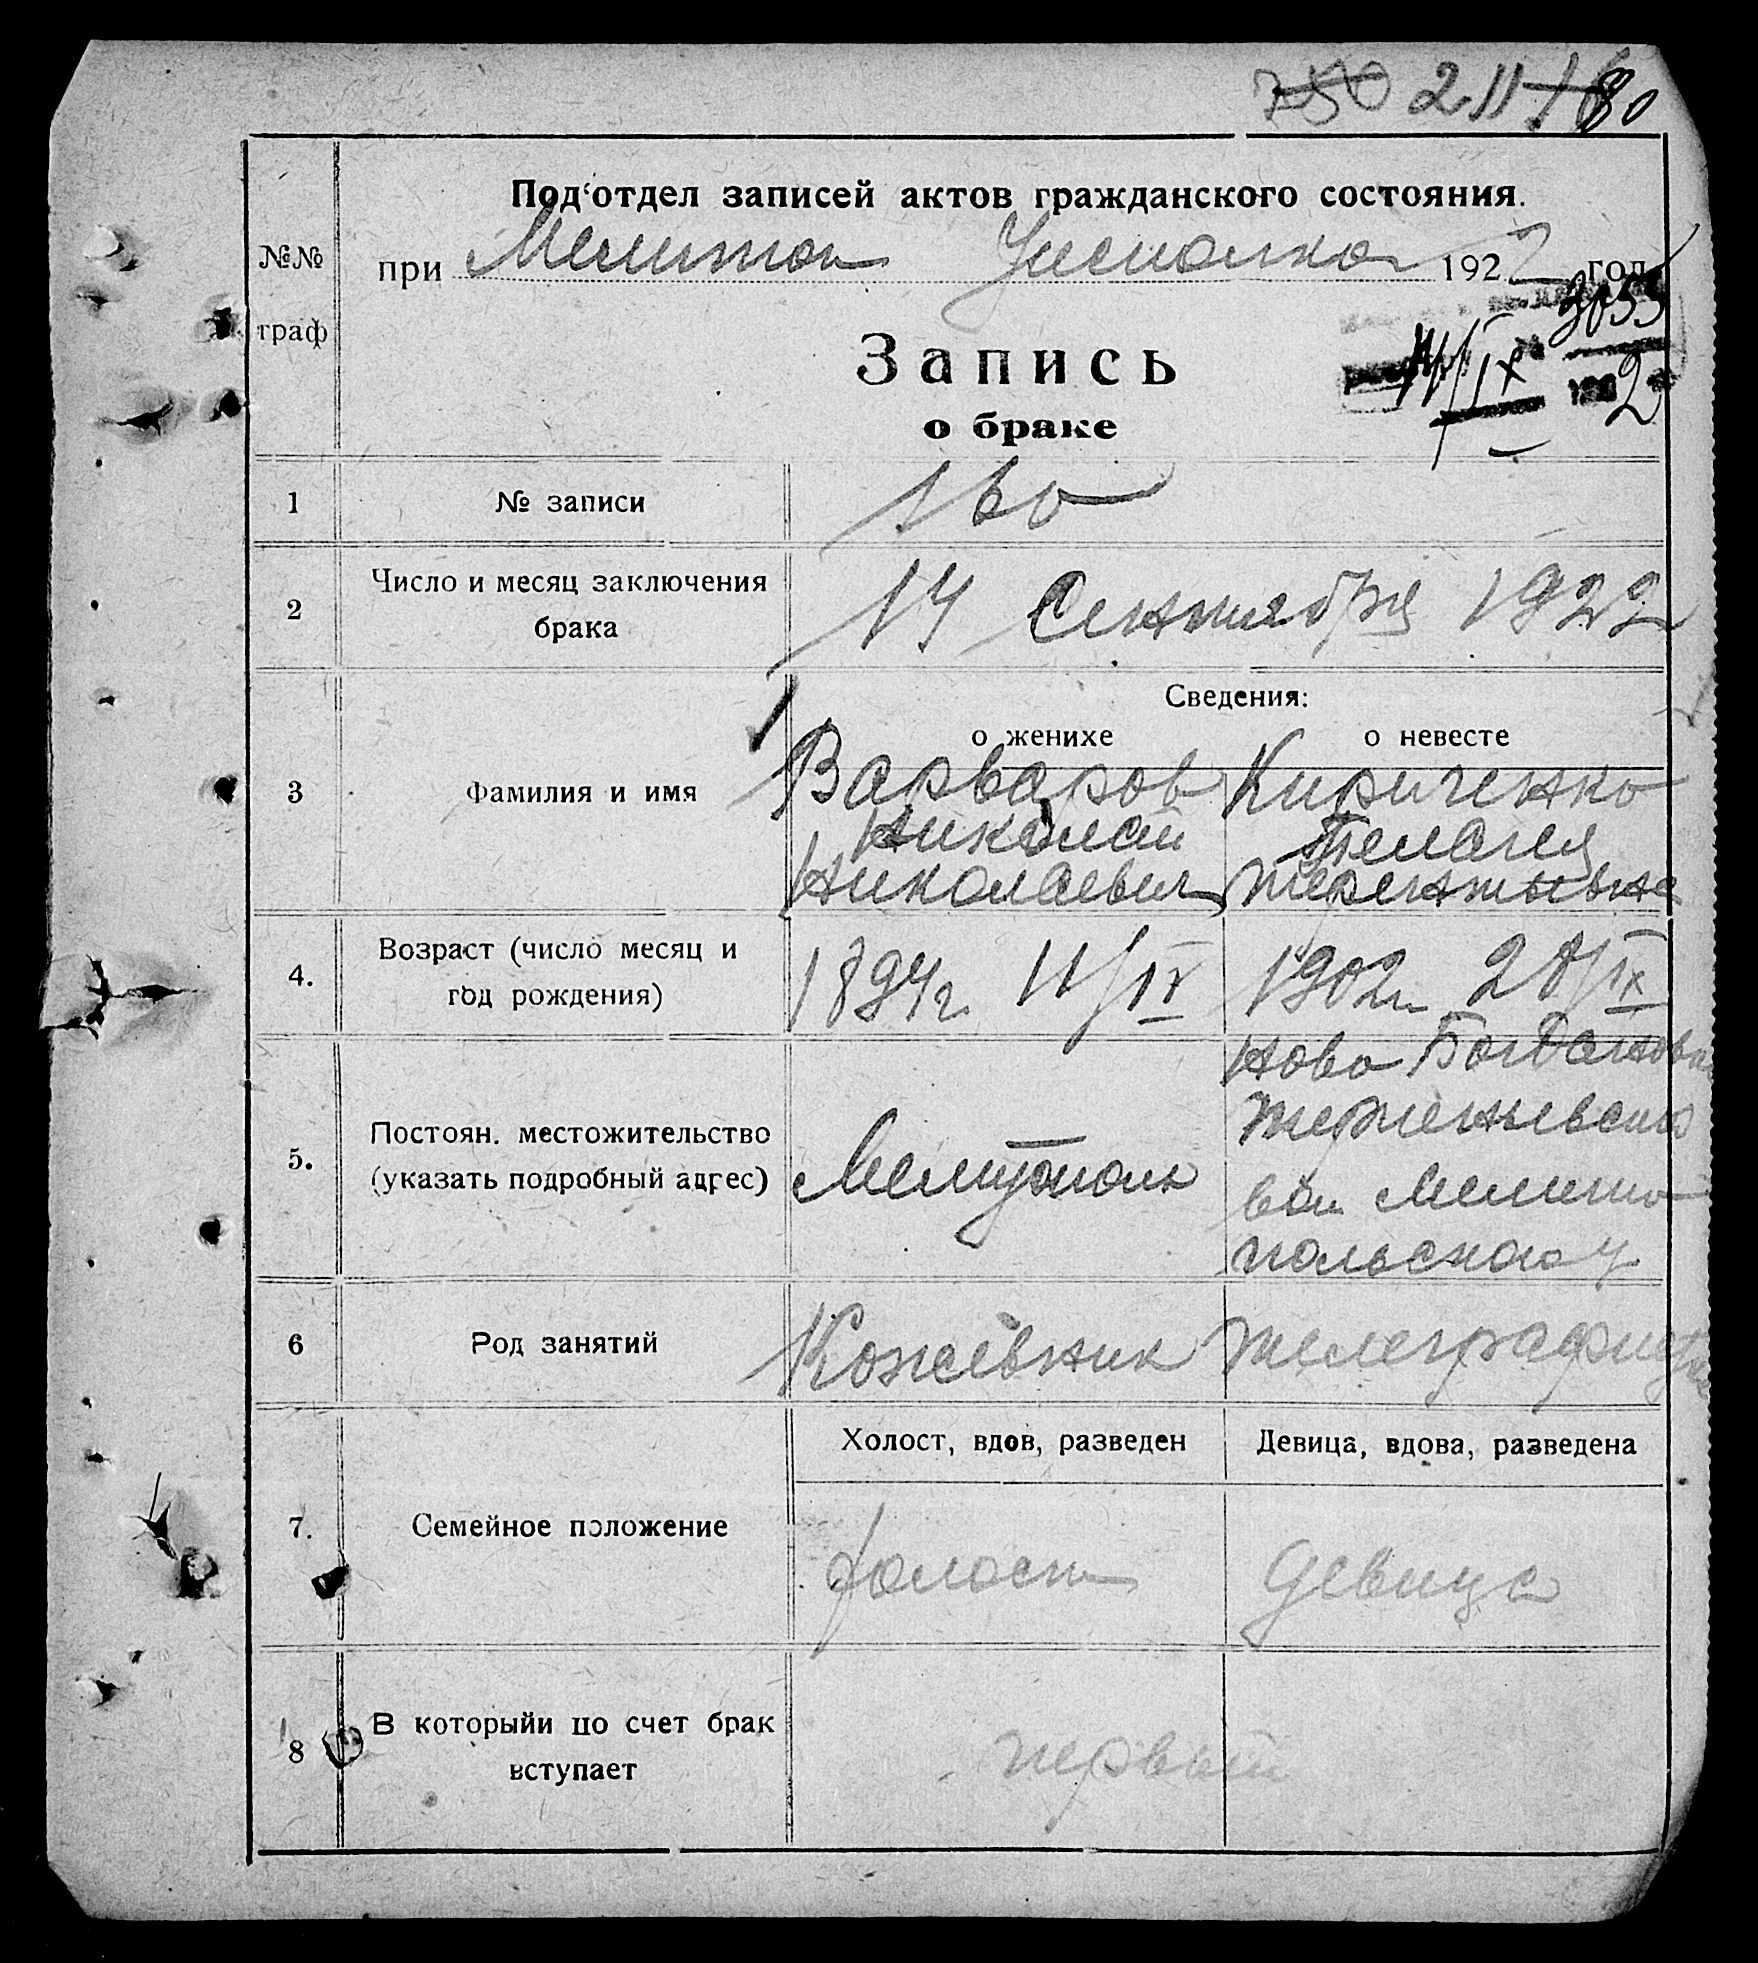 750 211 80
Под'отдел записей актов гражданского состояния.
№№ граф
при Мелитоп Уисполкоме 1922 год
3055
Запись
14/IX 1922
о браке
1 № записи 160
2 Число и месяц заключения брака 14 Сентября 1922
Сведения:
о женихе о невесте
3 Фамилия и имя
Варваров Кириченко
Николай Пелагея
Николаевич Терентьевна
4. Возраст (число месяц и год рождения) 1894г. 11/IV 1902г. 28/IX
5. Постоян. местожительство (указать подробный адрес)
Мелитополь
Ново Богдановка
Терпеньевской
вол. Мелито-
польского у
6 Род занятий Кожевник телеграфистка
Холост, вдов, разведен Девица, вдова, разведена
7. Семейное положение холост девица
8 В которыйи по счет брак вступает первый